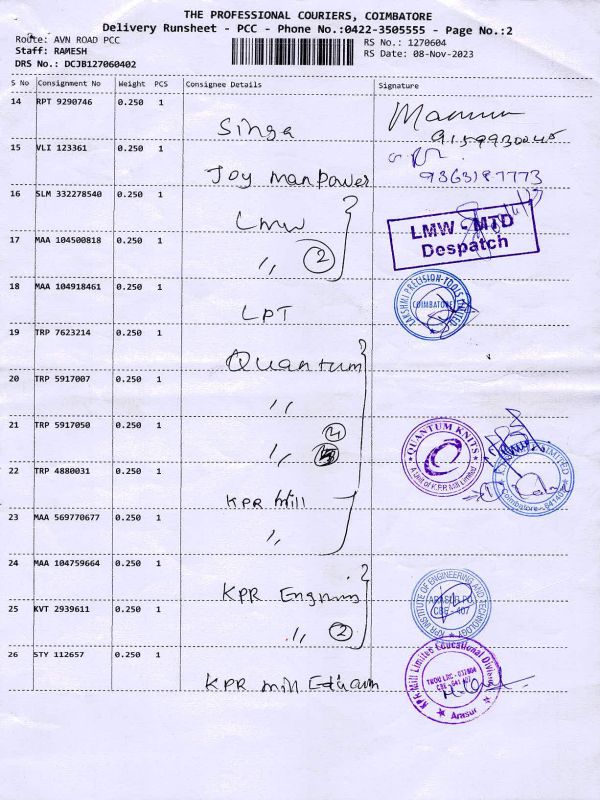 THE PROFESSIONAL COURIERS, COIMBATORE
Delivery Runsheet - PCC - Phone No.:0422-3505555 - Page No.:2
Route: AVN ROAD PCC
RS No.: 1270604
Staff: RAMESH
RS Date: 08-Nov-2023
DRS No.: DCJB127060402
S No Consignment No Weight PCS Consignee Details Signature
14 RPT 9290746 0.250 1
Singa
9159930245
15 VLI 123361 0.250 1
Joy manpower
9363187773
16 SLM 332278540 0.250 1
Lmw
LMW - MTD
Despatch
17 MAA 104500818 0.250 1
,, 2
18 MAA 104918461 0.250 1
LPT
LAKSHMI PRECISION TOOLS LIMITED
COIMBATORE
19 TRP 7623214 0.250 1
Quantum
20 TRP 5917007 0.250 1
,,
21 TRP 5917050 0.250 1
,,
QUANTUM KNITS
A Unit of K.P.R. Mill Limited
LIMITED
22 TRP 4880031 0.250 1
KPR Mill
23 MAA 569770677 0.250 1
,,
24 MAA 104759664 0.250 1
KPR
KPR INSTITUTE OF ENGINEERING AND TECHNOLOGY
25 KVT 2939611 0.250 1
,, 2
26 STY 112657 0.250 1
KPR mill
KPR Mill Limited Educational Division
Arasur